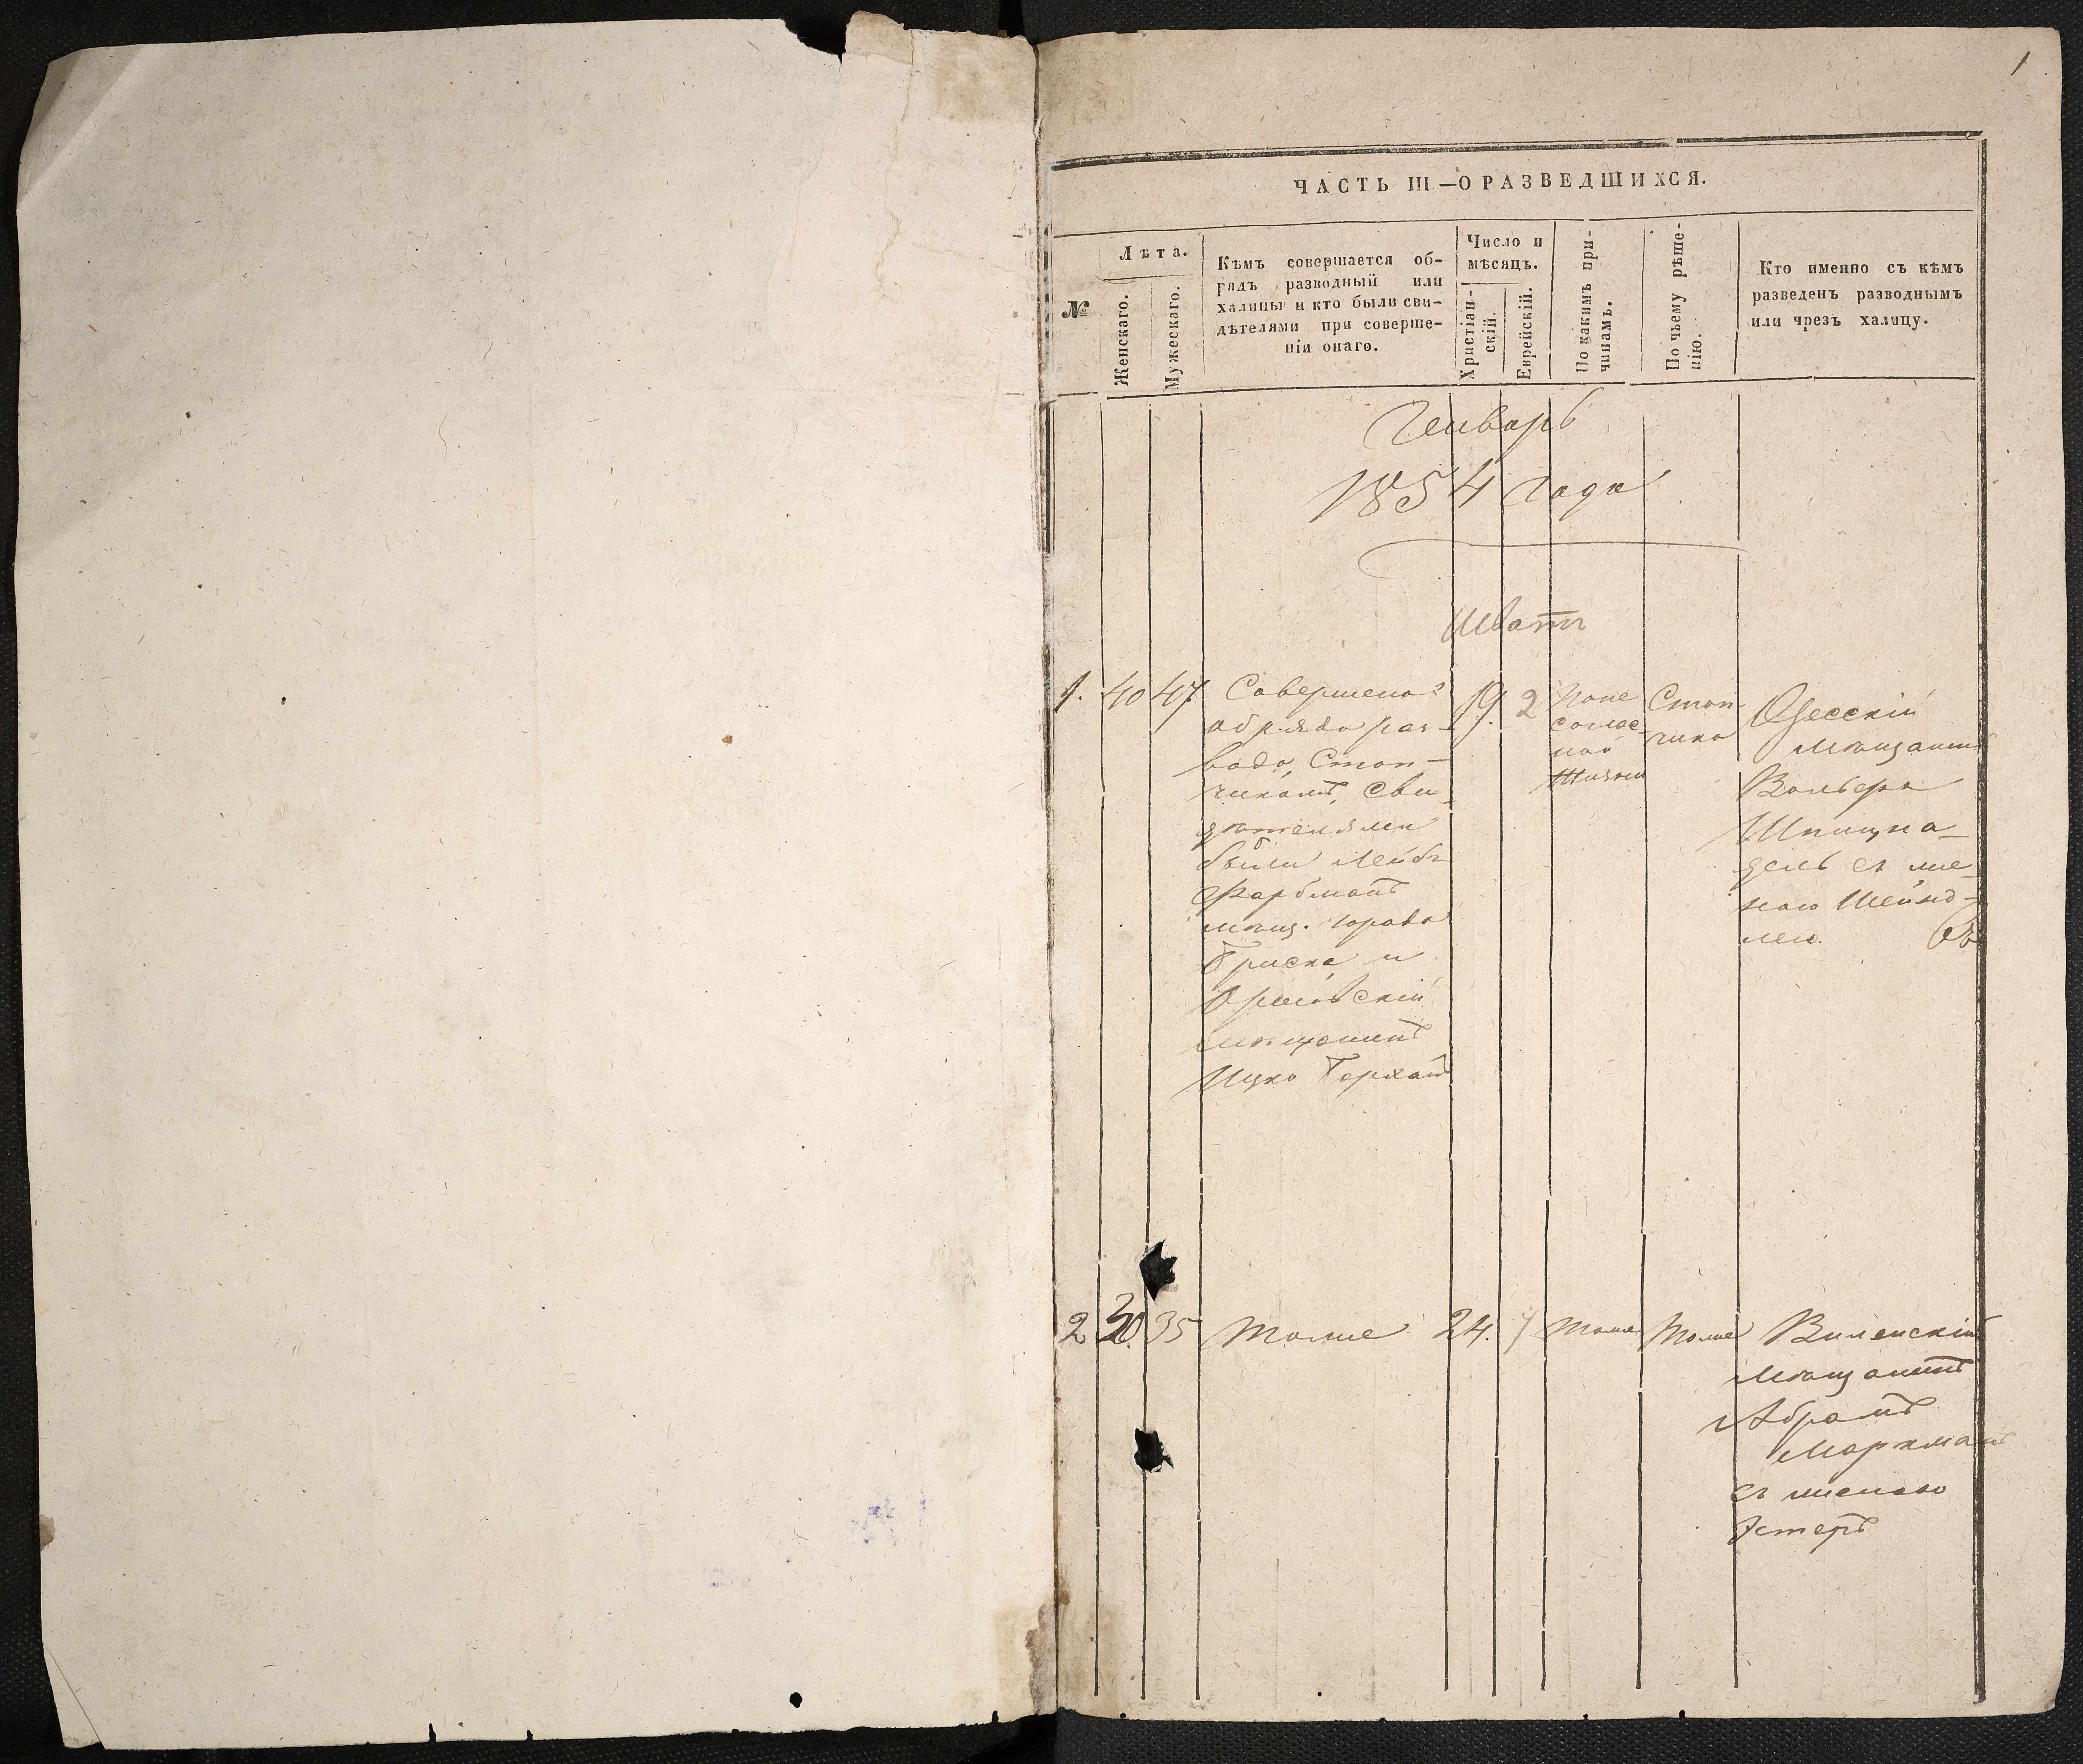 1
ЧАСТЬ III—О РАЗВЕДШИХСЯ.
№
Лѣта.
Женскаго.
Мужескаго.
Кѣмъ совершается об-
рядъ разводный или
халицы и кто были сви-
дѣтелями при соверше-
ніи онаго.
Число и
мѣсяцъ.
Христіан-
скій.
Еврейскій.
По какимъ при-
чинамъ.
По чьему рѣше-
нію.
Кто именно съ кѣмъ
разведенъ разводнымъ
или чрезъ халицу.
Генварь
1854 года
Шватъ
1. 40 47
Совершено
обряда раз-
вода Стоп-
чикомъ, Сви-
дѣтелями
были Лейбъ
Фарбманъ
мѣщ. города
и
мѣщанинъ
Ицко
19. 2
По не
соглас-
ной
Жизни
Стоп-
чика
Одесскій
мѣщанинъ
Вольфъ
Шпицна-
дель съ же-
ною Шейнд-
лею.
2 30 35 тоже 24. 7 тоже тоже
Виленскій
мѣщанинъ
Абрамъ
Маркманъ
съ женою
Эстеръ